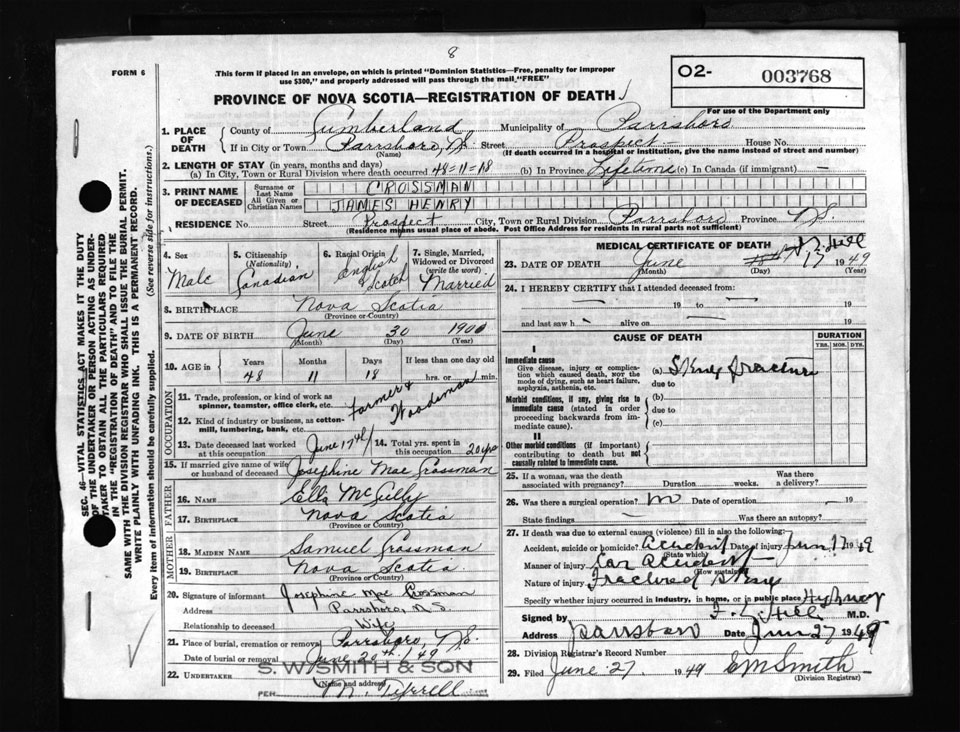 8
FORM 6
This form if placed in an envelope, on which is printed "Dominion Statistics—Free, penalty for improper
use $300," and properly addressed will pass through the mail, "FREE"
O2- 003768
For use of the Department only
PROVINCE OF NOVA SCOTIA—REGISTRATION OF DEATH
1. PLACE OF DEATH
County of Cumberland Municipality of Parrsboro
If in City or Town Parrsboro, N.S. Street Prospect House No.
(Name) (If death occurred in a hospital or institution, give the name instead of street and number)
2. LENGTH OF STAY (in years, months and days)
(a) In City, Town or Rural Division where death occurred 48=11=18 (b) In Province Lifetime (c) In Canada (if immigrant) —
3. PRINT NAME OF DECEASED
Surname or Last Name CROSSMAN
All Given or Christian Names JAMES HENRY
RESIDENCE No. Street Prospect City, Town or Rural Division Parrsboro Province N.S.
(Residence means usual place of abode. Post Office Address for residents in rural parts not sufficient)
4. Sex Male
5. Citizenship (Nationality) Canadian
6. Racial Origin English Scotch
7. Single, Married, Widowed or Divorced (write the word) Married
8. BIRTHPLACE Nova Scotia
(Province or Country)
9. DATE OF BIRTH June 30 1900
(Month) (Day) (Year)
10. AGE in Years 48 Months 11 Days 18 If less than one day old hrs. or min.
OCCUPATION
11. Trade, profession, or kind of work as spinner, teamster, office clerk, etc. Farmer &
12. Kind of industry or business, as cotton-mill, lumbering, bank, etc. Woodsman
13. Date deceased last worked at this occupation June 17th
14. Total yrs. spent in this occupation 20 yrs
15. If married give name of wife or husband of deceased Josephine Mae Crossman
FATHER
16. NAME Ella McCully
17. BIRTHPLACE Nova Scotia
(Province or Country)
MOTHER
18. MAIDEN NAME Samuel Crossman
19. BIRTHPLACE Nova Scotia
(Province or Country)
20. Signature of informant Josephine Mae Crossman
Address Parrsboro, N.S.
Relationship to deceased Wife
21. Place of burial, cremation or removal Parrsboro, N.S.
Date of burial or removal June 20th/49
S. W. SMITH & SON
22. UNDERTAKER
(Name and address)
PER M. Tyrrell
MEDICAL CERTIFICATE OF DEATH
23. DATE OF DEATH June 17 1949
(Month) (Day) (Year)
24. I HEREBY CERTIFY that I attended deceased from:
19 to 19
and last saw h alive on 19
CAUSE OF DEATH
DURATION
YRS. MOS. DYS.
I
Immediate cause
Give disease, injury or complication which caused death, not the mode of dying, such as heart failure, asphyxia, asthenia, etc.
(a) Skull fracture
due to
Morbid conditions, if any, giving rise to immediate cause (stated in order proceeding backwards from immediate cause).
(b)
due to
(c)
II
Other morbid conditions (if important) contributing to death but not causally related to immediate cause.
25. If a woman, was the death associated with pregnancy? Duration weeks. Was there a delivery?
26. Was there a surgical operation? no Date of operation 19
State findings Was there an autopsy?
27. If death was due to external causes (violence) fill in also the following:
Accident, suicide or homicide? Accident Date of injury June 17 1949
(State which)
Manner of injury Car Accident
(How sustained)
Nature of injury Fractured Skull
Specify whether injury occurred in industry, in home, or in public place Highway
Signed by F. L. Hill M.D.
Address Parrsboro Date June 27 1949
28. Division Registrar's Record Number
29. Filed June 27 1949 E M Smith
(Division Registrar)
SEC. 46—VITAL STATISTICS ACT MAKES IT THE DUTY
OF THE UNDERTAKER OR PERSON ACTING AS UNDER-
TAKER TO OBTAIN ALL THE PARTICULARS REQUIRED
IN THE "REGISTRATION OF DEATH" AND TO FILE THE
SAME WITH THE DIVISION REGISTRAR WHO SHALL ISSUE THE BURIAL PERMIT.
WRITE PLAINLY WITH UNFADING INK. THIS IS A PERMANENT RECORD.
Every item of information should be carefully supplied. (See reverse side for instructions.)